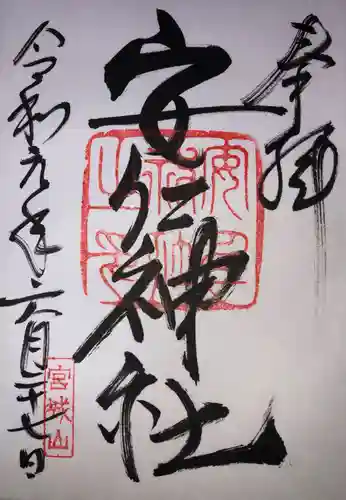 奉拝
安仁神社
令和元年六月二十七日
宮城山